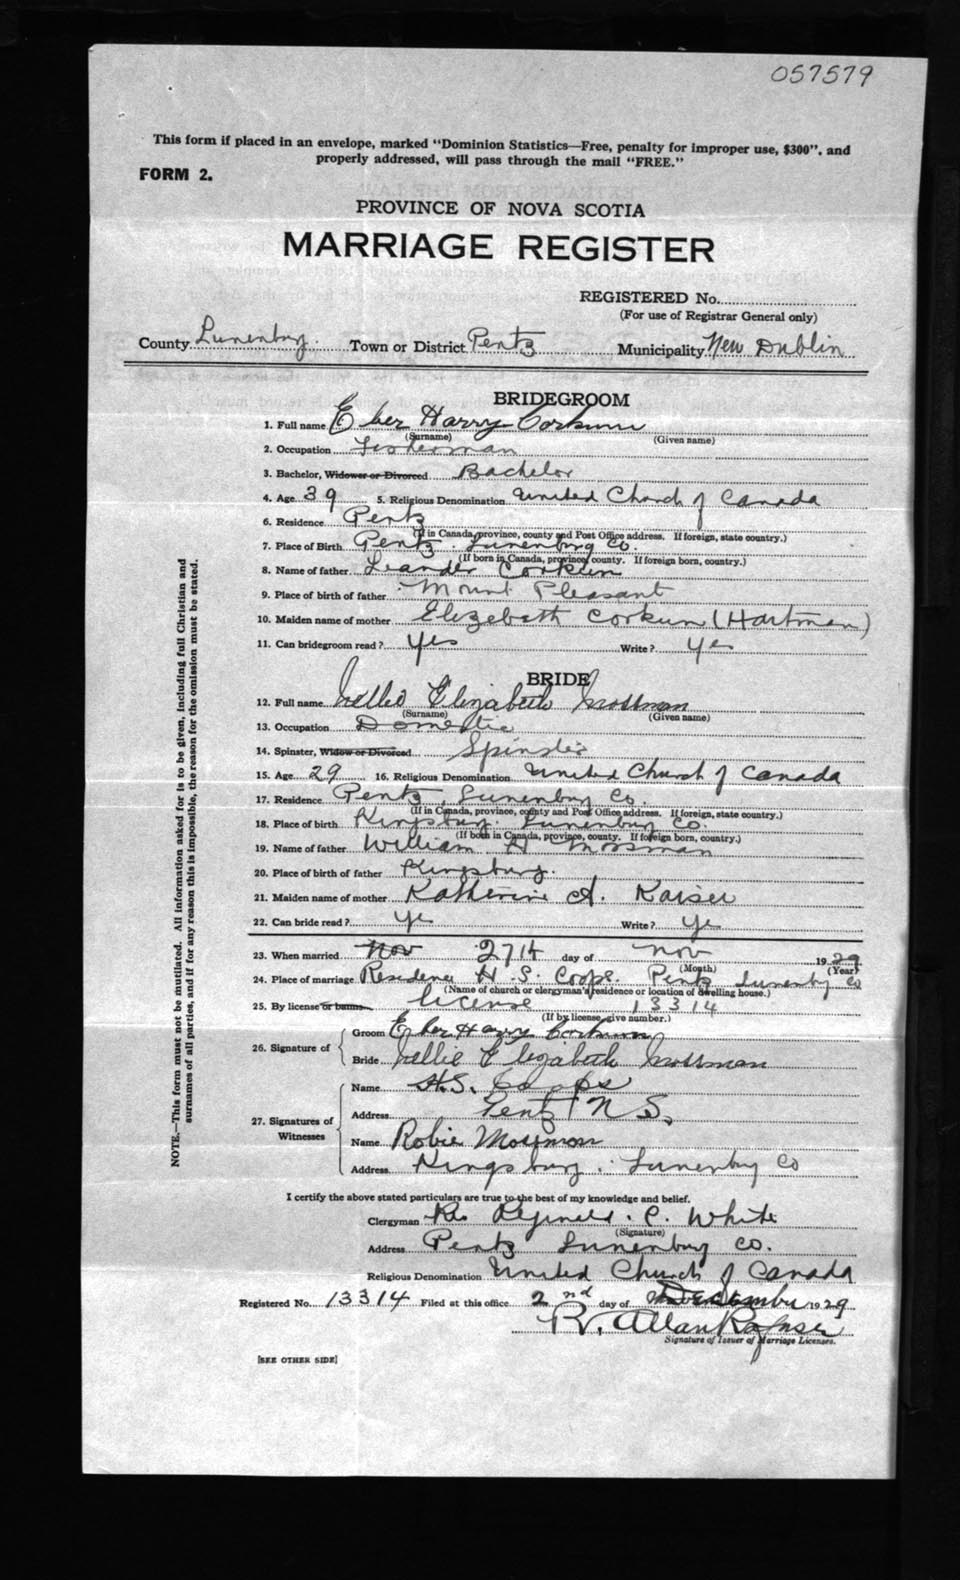 057579
This form if placed in an envelope, marked "Dominion Statistics—Free, penalty for improper use, $300", and
properly addressed, will pass through the mail "FREE."
FORM 2.
PROVINCE OF NOVA SCOTIA
MARRIAGE REGISTER
REGISTERED No.
(For use of Registrar General only)
County Lunenburg. Town or District Pentz Municipality New Dublin
BRIDEGROOM
1. Full name Eber Harry Corkum
(Surname) (Given name)
2. Occupation Fisherman
3. Bachelor, Widower or Divorced Bachelor
4. Age 39 5. Religious Denomination United Church of Canada
6. Residence Pentz
(If in Canada, province, county and Post Office address. If foreign, state country.)
7. Place of Birth Pentz Lunenburg Co.
(If born in Canada, province, county. If foreign born, country.)
8. Name of father Leander Corkum
9. Place of birth of father Mount Pleasant
10. Maiden name of mother Elizebeth Corkum (Hartman)
11. Can bridegroom read? Yes Write? Yes
BRIDE
12. Full name Nellie Elizabeth Mossman
(Surname) (Given name)
13. Occupation Domestic
14. Spinster, Widow or Divorced Spinster
15. Age 29 16. Religious Denomination United Church of Canada
17. Residence Pentz, Lunenburg Co.
(If in Canada, province, county and Post Office address. If foreign, state country.)
18. Place of birth Kingsburg. Lunenburg Co.
(If born in Canada, province, county. If foreign born, country.)
19. Name of father William H Mossman
20. Place of birth of father Kingsburg.
21. Maiden name of mother Katherine A. Kaiser
22. Can bride read? Ye Write? Ye
23. When married Nov 27th day of Nov 1929
(Month) (Year)
24. Place of marriage Residence H. S. Coops. Pentz Lunenburg Co
(Name of church or clergyman's residence or location of dwelling house.)
25. By license or banns license 13314
(If by license, give number.)
Groom Eber Harry Corkum
26. Signature of
Bride Nellie Elizabeth Mossman
Name H.S. Coops
Address Pentz N S.
27. Signatures of
Witnesses
Name Robie Mossman
Address Kingsburg. Lunenburg Co
I certify the above stated particulars are true to the best of my knowledge and belief.
Clergyman Rev Reginald. C. White
(Signature)
Address Pentz Lunenburg Co.
Religious Denomination United Church of Canada
Registered No. 13314 Filed at this office 2nd day of December 1929
R. Allan
Signature of Issuer of Marriage Licenses.
[SEE OTHER SIDE]
NOTE.—This form must not be mutilated. All information asked for is to be given, including full Christian and
surnames of all parties, and if for any reason this is impossible, the reason for the omission must be stated.